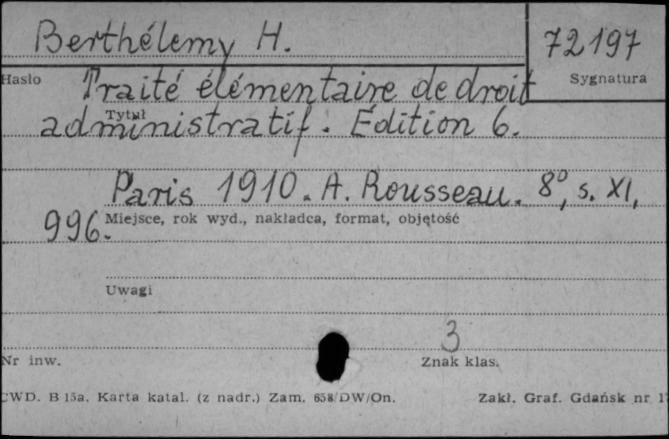 Berthélemy H.
72197
Hasło
Sygnatura
Traité élémentaire de droit
Tytuł
administratif. Édition 6.
Paris 1910. A. Rousseau. 8°, s. XI,
996.
Miejsce, rok wyd., nakładca, format, objętość
Uwagi
3
Nr inw.
Znak klas.
CWD. B 15a. Karta katal. (z nadr.) Zam. 658/DW/On.
Zakł. Graf. Gdańsk nr